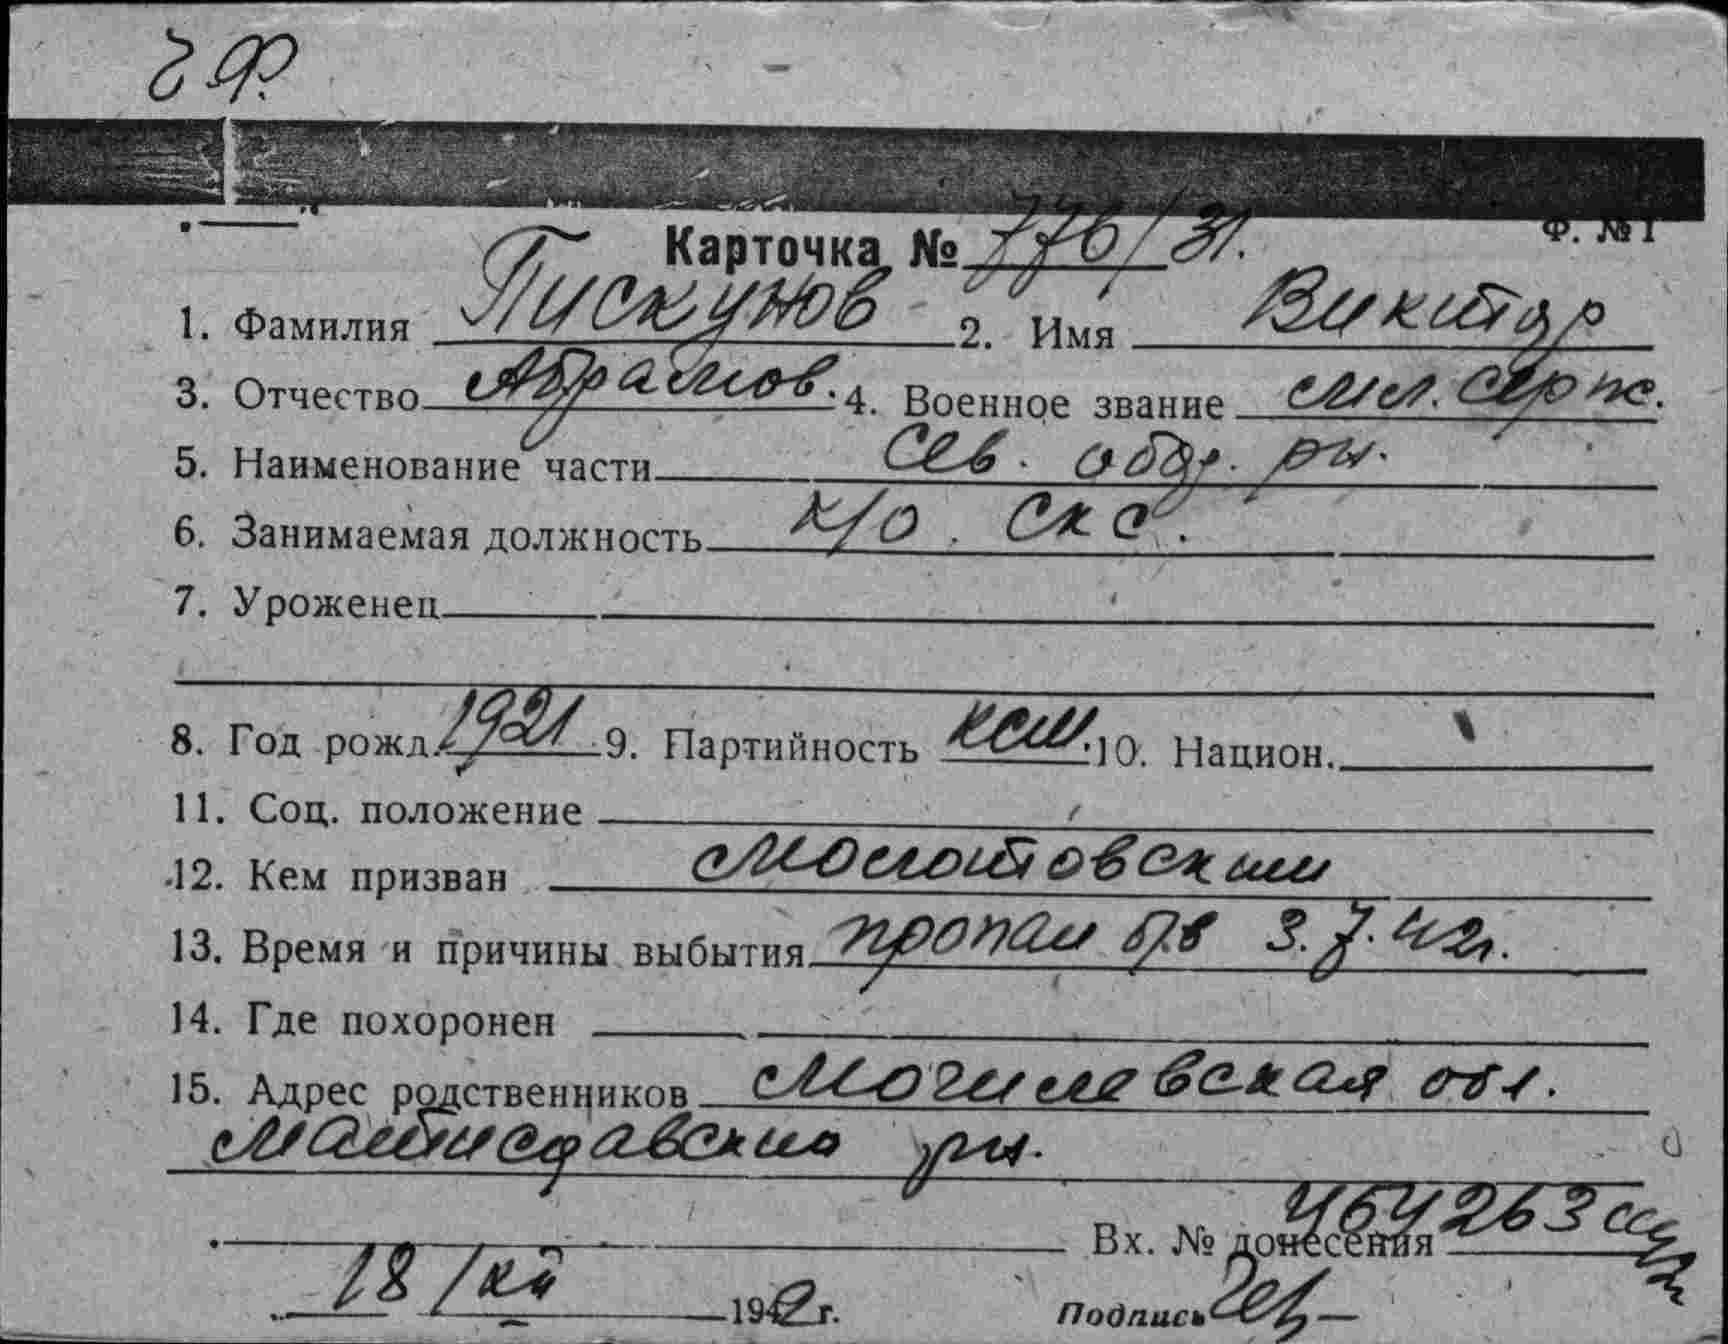 Ф. №1
Карточка № 776/31.
1. Фамилия Пискунов 2. Имя Виктор
3. Отчество Абрамов. 4. Военное звание мл. серж.
5. Наименование части Сев. обор. рн.
6. Занимаемая должность к/о. СКС.
7. Уроженец
8. Год рожд. 1921 9. Партийность ксм. 10. Национ.
11. Соц. положение
12. Кем призван Молотовским
13. Время и причины выбытия пропал б/в 3.7.42г.
14. Где похоронен
15. Адрес родственников Могилевская обл.
рн.
Вх. № донесения
18/XII 1942 г. Подпись